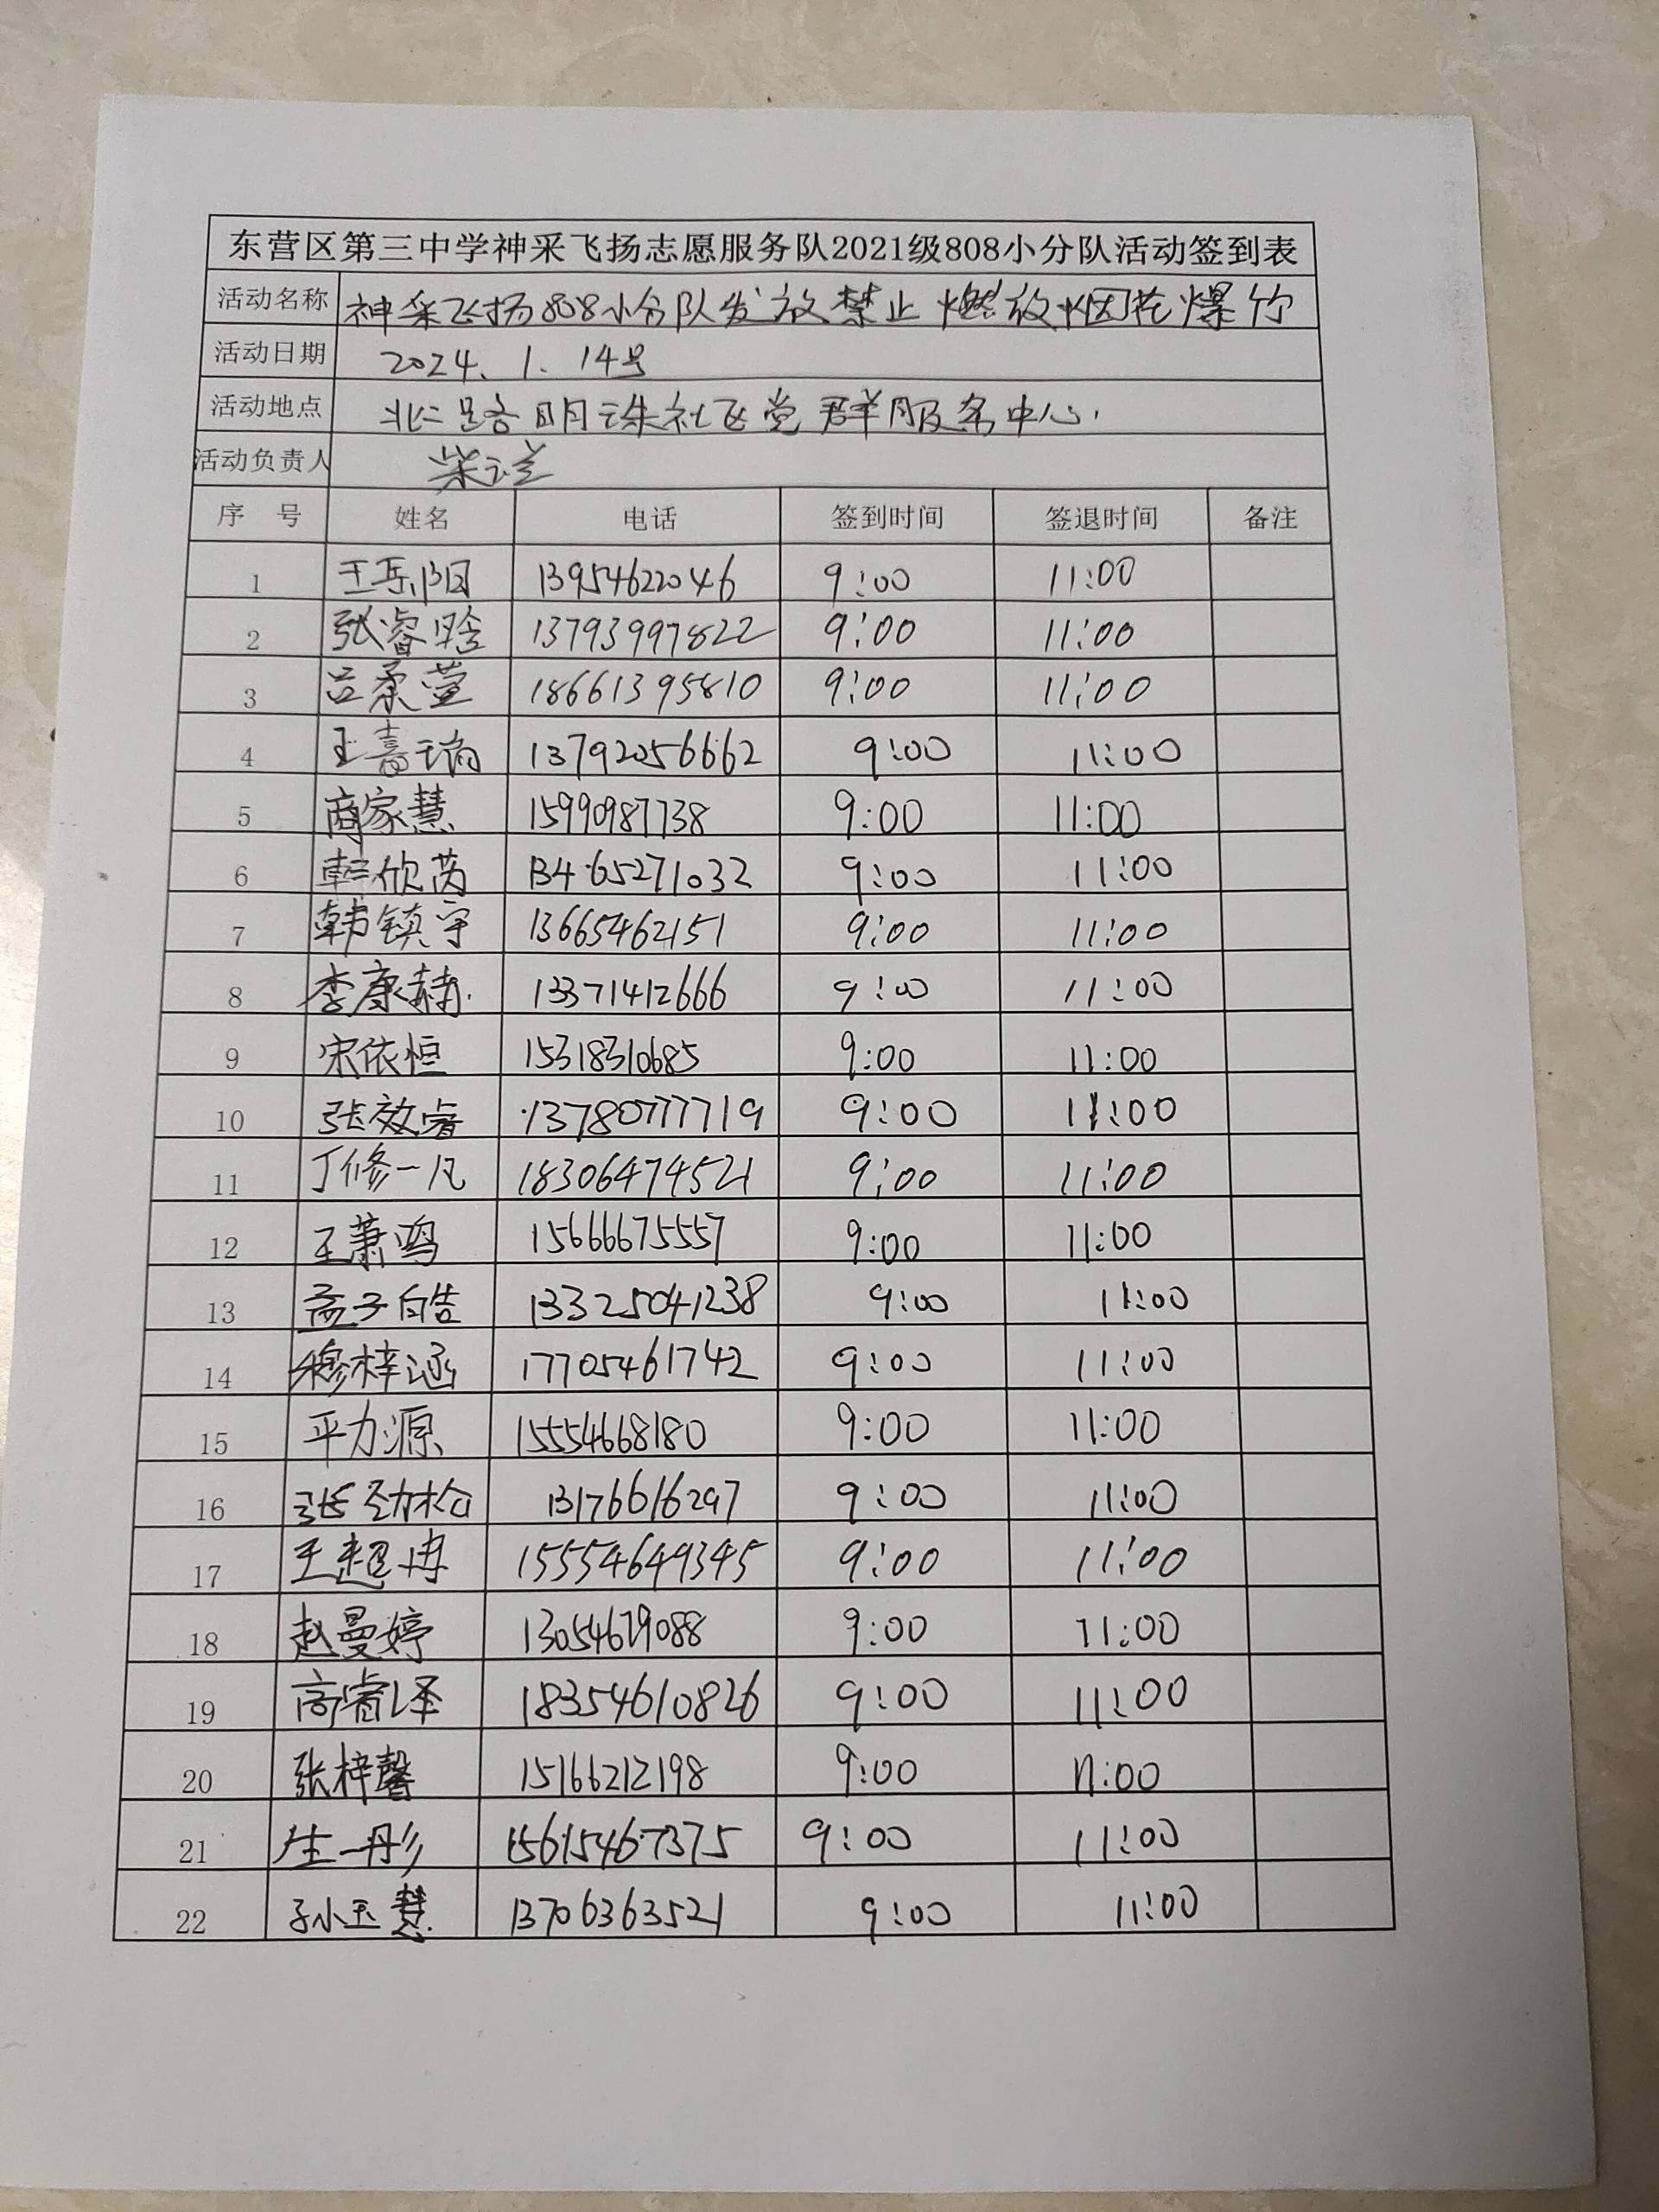 东营区第三中学神采飞扬志愿服务队2021级808小分队活动签到表
活动名称 神采飞扬808小分队发放禁止燃放烟花爆竹
活动日期 2024.1.14号
活动地点 北二路明珠社区党群服务中心.
活动负责人
序号 姓名 电话 签到时间 签退时间 备注
1 王岳阳 13954622046 9:00 11:00
2 张睿晗 13793997822 9:00 11:00
3 吕柔萱 18661395810 9:00 11:00
4 王嘉瑞 13792056662 9:00 11:00
5 商家慧 15990987738 9:00 11:00
6 韩欣芮 13465271032 9:00 11:00
7 韩镇宇 13665462151 9:00 11:00
8 李康赫 13371412666 9:00 11:00
9 宋依恒 15318310685 9:00 11:00
10 张效睿 13780777719 9:00 11:00
11 丁修一凡 18306474521 9:00 11:00
12 王萧鸿 15666675557 9:00 11:00
13 孟子皓 13325041238 9:00 11:00
14 穆梓涵 17705461742 9:00 11:00
15 平力源 15554668180 9:00 11:00
16 张劲松 13176616297 9:00 11:00
17 王超冉 15554649345 9:00 11:00
18 赵曼婷 13054679088 9:00 11:00
19 高睿泽 18354610826 9:00 11:00
20 张梓馨 15166212198 9:00 11:00
21 生一彤 15615467375 9:00 11:00
22 孙玉慧 13706363521 9:00 11:00